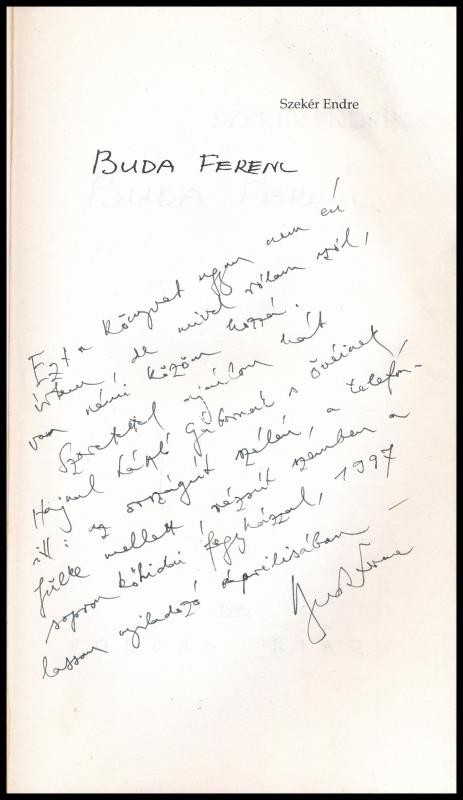 Szekér Endre
BUDA FERENC
Ezt a könyvet ugyan nem én
írtam, de mivel rólam szól,
van némi közöm hozzá.
Szeretettel ajánlom hát
Hajnal László Gábornak s övéinek
itt: az országút szélén, a telefon-
fülke mellett, rézsút szemben a
sopronkőhidai fegyházzal, 1997
lassan nyiladozó áprilisában –
Buda Ferenc